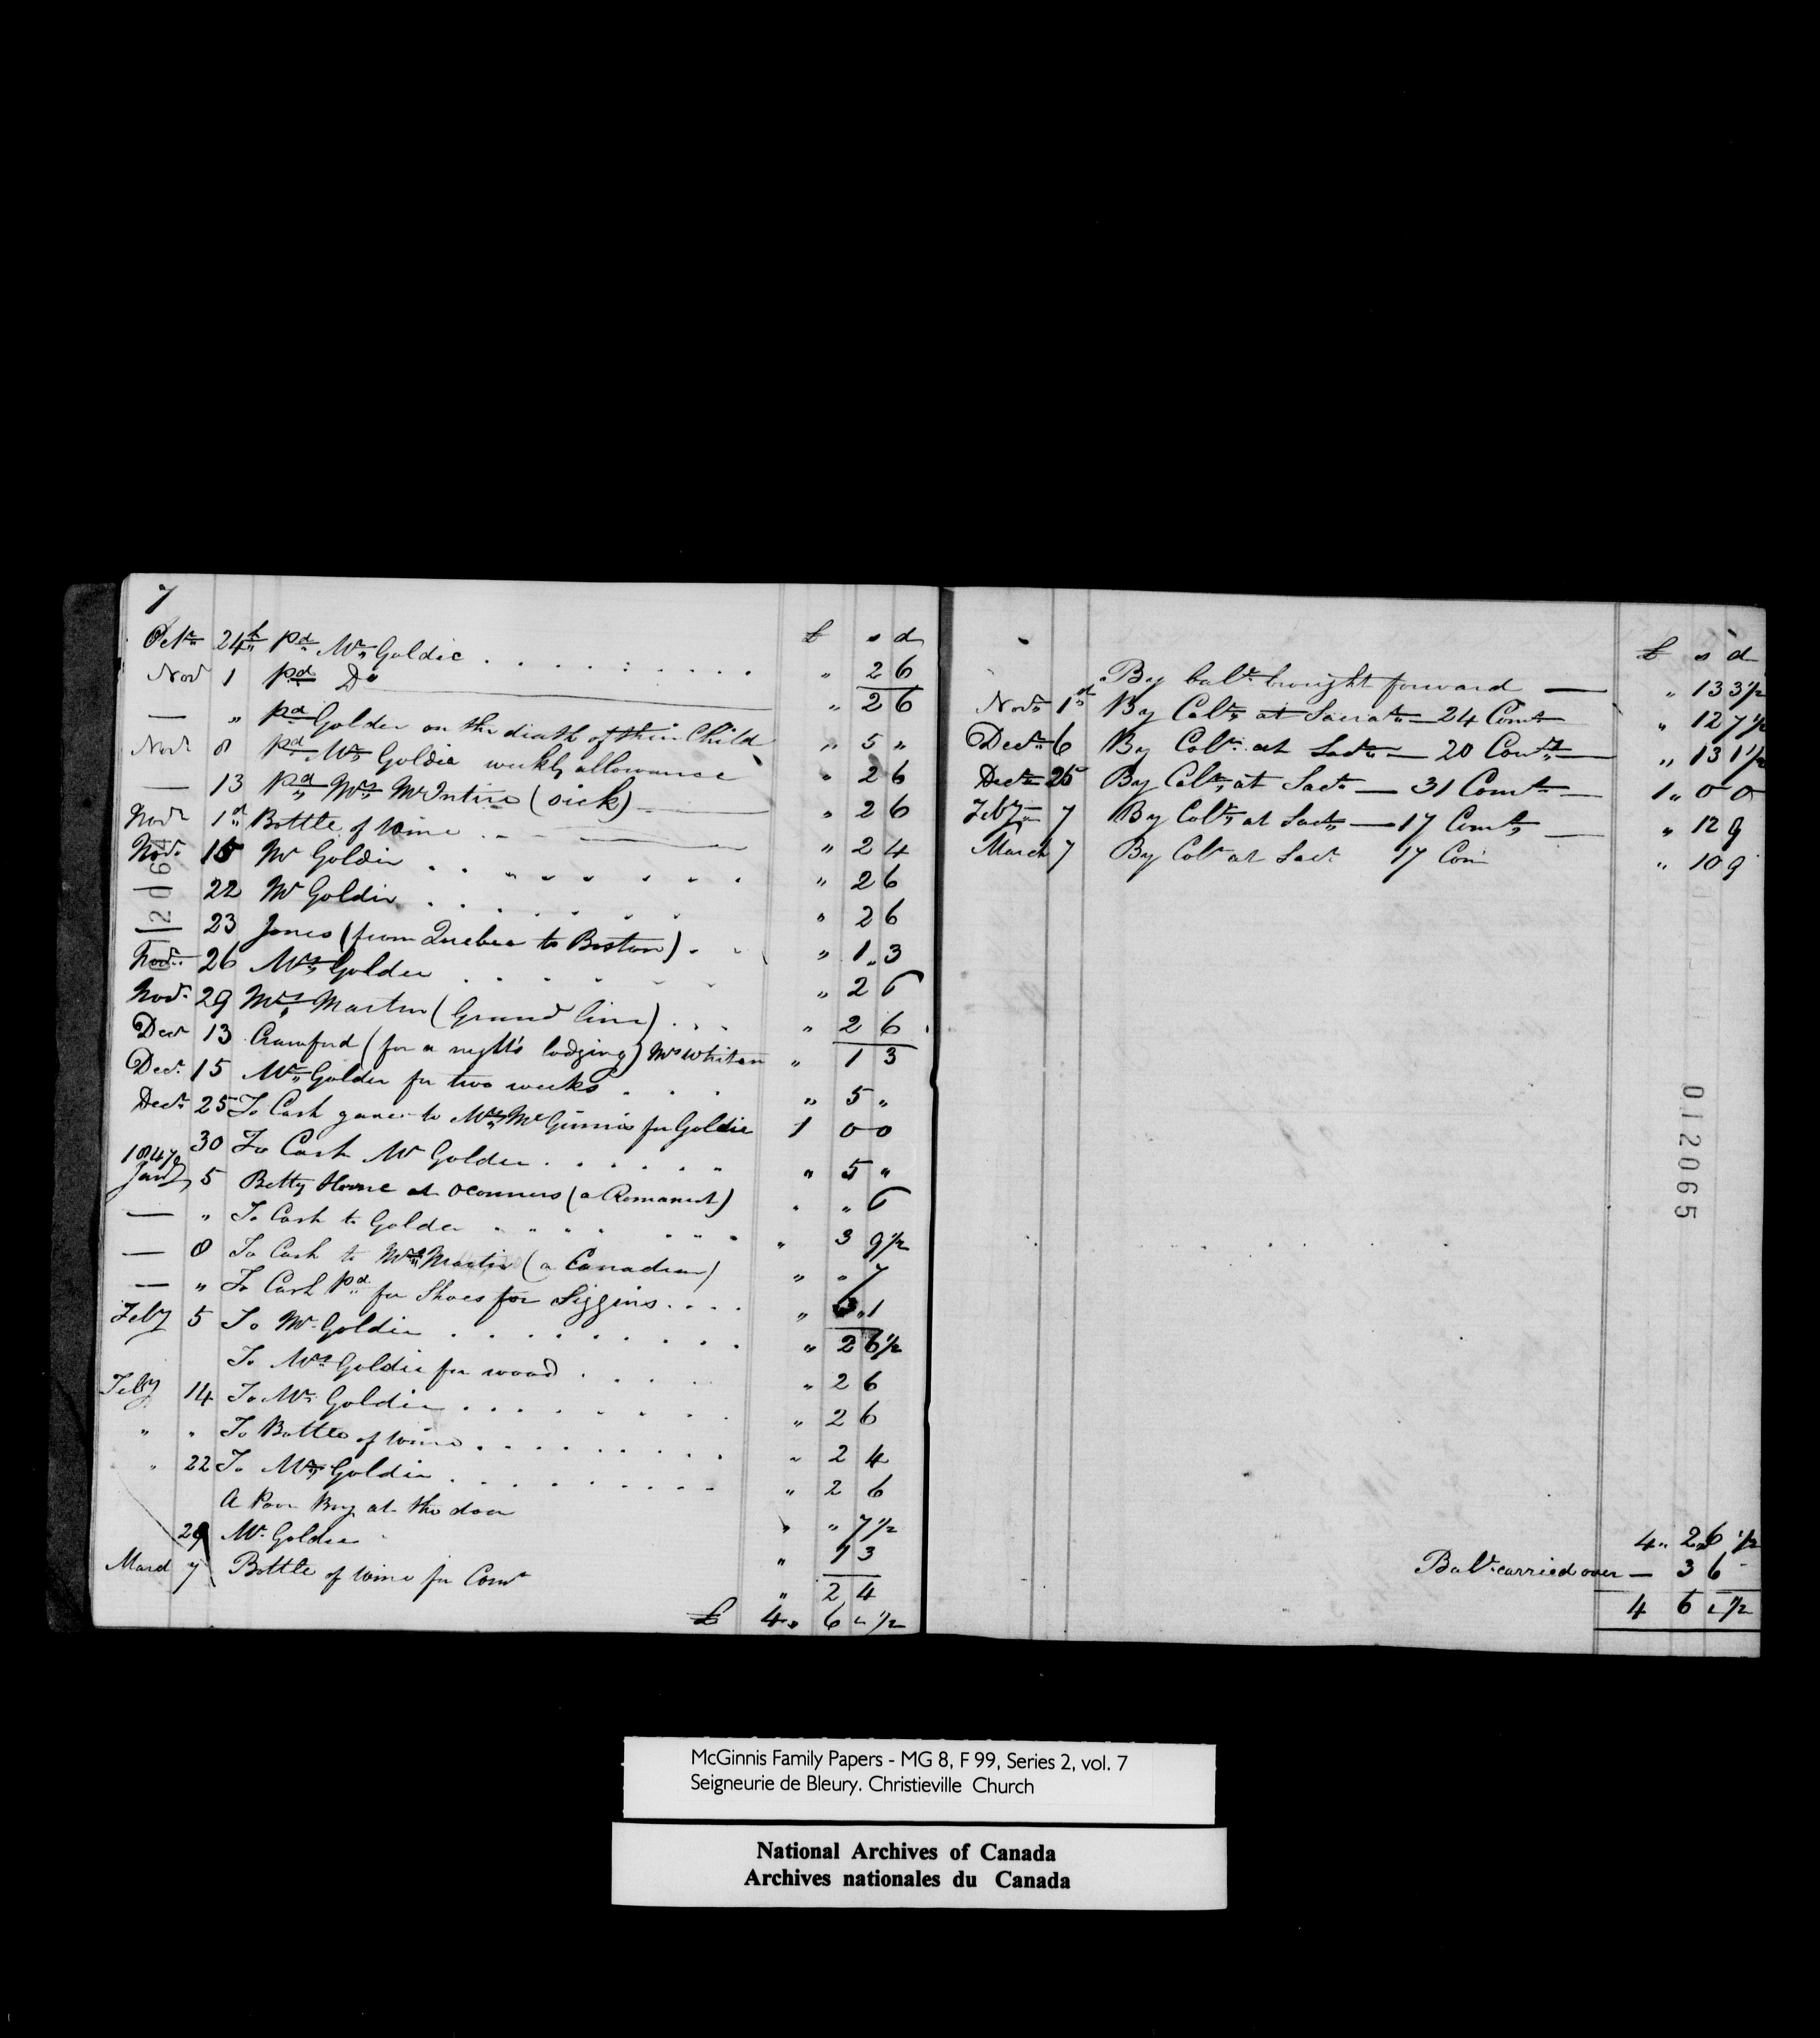 7
£ s d
Octr 24th pd Mrs Goldie . . . . . . . . . " 2 6
Novr 1 pd Do " 2 6
— " pd Goldie on the death of their Child " 5 "
Novr 8 pd Mrs Goldie weekly allowance " 2 6
— 13 pd Mrs McIntire (sick) — " 2 6
Novr 1st Bottle of Wine " 2 4
Novr 15 Mr Goldie . . . . . . . " 2 6
22 Mr Goldie . . . . . . . " 2 6
23 Jones (from Quebec to Boston) . . " 1 " 3
Novr 26 Mrs Goldie . . . . . " 2 6
Novr 29 Mrs Martin (Grand line) . . . " 2 6
Decr 13 Crawford (for a night's lodging) Mrs Whitean " 1 3
Decr 15 Mrs Goldie for two weeks . . . " 5 "
Decr 25 To Cash gave to Mrs McGinnis for Goldie 1 0 0
30 To Cash Mr Goldie . . . . . . " 5 "
1847
Jany 5 Betty Horne at OConners (a Romanist) " " 6
— " To Cash to Goldie . . . . . . . " 3 9½
— 8 To Cash to Mrs Martin (a Canadian) " " 7
— " To Cash pd for Shoes for Siggins . . . . " 6 " 1
Feby 5 To Mr Goldie . . . . . . . . . " 2 6½
To Mrs Goldie for wood . . . . . " 2 6
Feby 14 To Mr Goldie . . . . . . . . " 2 6
" " To Bottle of Wine . . . . . . . . . " 2 4
" 22 To Mrs Goldie . . . . . . . . . " 2 6
A Poor Boy at the door " " 7½
29 Mr Goldie " 1 3
March 7 Bottle of Wine for Comn " 2 4
£ 4 " 6 " ½
012064
£ s d
By balce brought forward — " 13 3½
Novr 1st By Coltn at Sacrat — 24 Comts " 12 7½
Decr 6 By Coltn at Sact — 20 Comts — " 13 1½
Decr 25 By Coltn at Sact — 31 Comts — 1 " 0 0
Feby 7 By Coltn at Sact — 17 Comts — " 12 9
March 7 By Colt at Sact 17 Com " 10 9
012065
4 " 2 " 6 ½
Balce carried over — 3 6 -
4 6 " ½
McGinnis Family Papers - MG 8, F 99, Series 2, vol. 7
Seigneurie de Bleury. Christieville Church
National Archives of Canada
Archives nationales du Canada